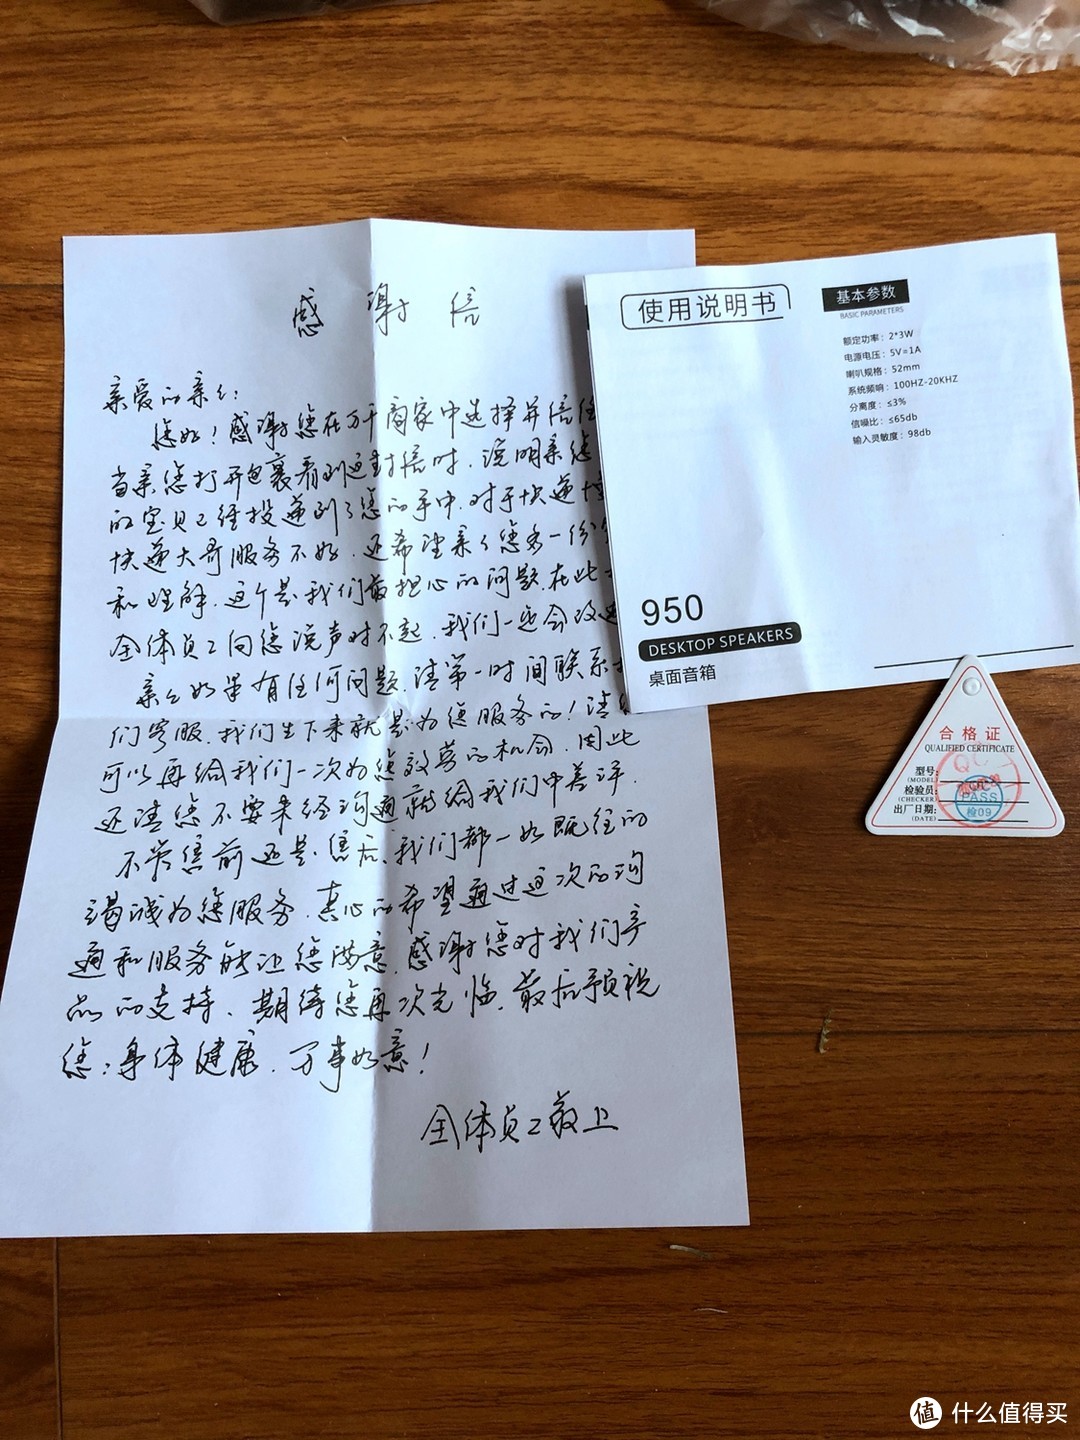 感谢信
亲爱的亲们:
您好！感谢您在万千商家中选择并信任
当亲您打开包裹看到这封信时.说明亲您
的宝贝已经投递到了您的手中.对于快递
快递大哥服务不好.还希望亲们您多一份
和理解.这个是我们最担心的问题.在此
全体员工向您说声对不起.我们一定会改进
亲们如果有任何问题.请第一时间联系我
们客服.我们生下来就是为您服务的！请
可以再给我们一次为您效劳的机会.因此
还请您不要未经沟通就给我们中差评.
不管售前还是售后、我们都一如既往的
竭诚为您服务.真心的希望通过这次的沟
通和服务能让您满意.感谢您对我们产
品的支持、期待您再次光临.最后预祝
您:身体健康.万事如意！
全体员工敬上
使用说明书
基本参数
BASIC PARAMETERS
额定功率: 2*3W
电源电压: 5V=1A
喇叭规格: 52mm
系统频响: 100HZ-20KHZ
分离度: ≤3%
信噪比: ≤65db
输入灵敏度: 98db
950
DESKTOP SPEAKERS
桌面音箱
合格证
QUALIFIED CERTIFICATE
型号:
(MODEL)
检验员:
(CHECKER)
出厂日期:
(DATE)
QC
PASS
检09
值 什么值得买